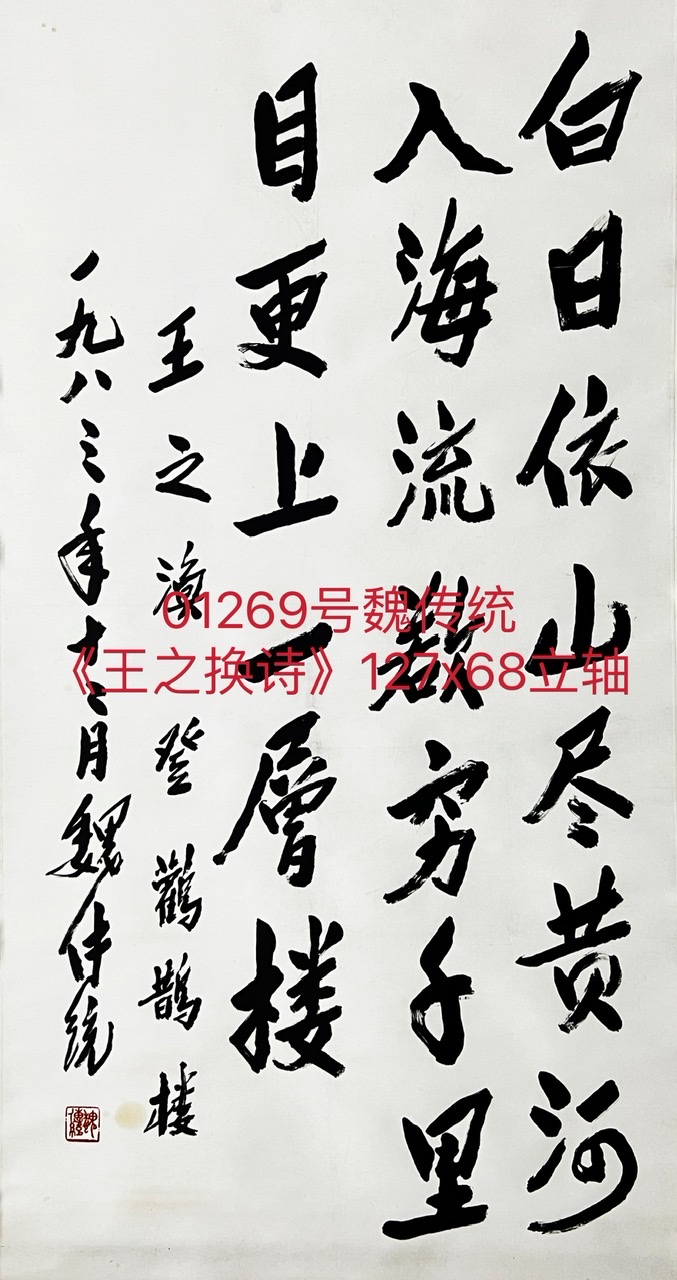 白日依山尽黄河
入海流欲穷千里
目更上一層楼
王之渙登鸛鵲楼
一九八三年十二月魏传统
01269号魏传统
《王之换诗》127x68立轴